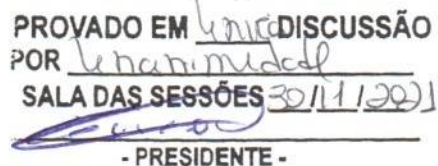 PROVADO EM Única DISCUSSÃO
POR Unanimidade
SALA DAS SESSÕES 30/11/2021
- PRESIDENTE -